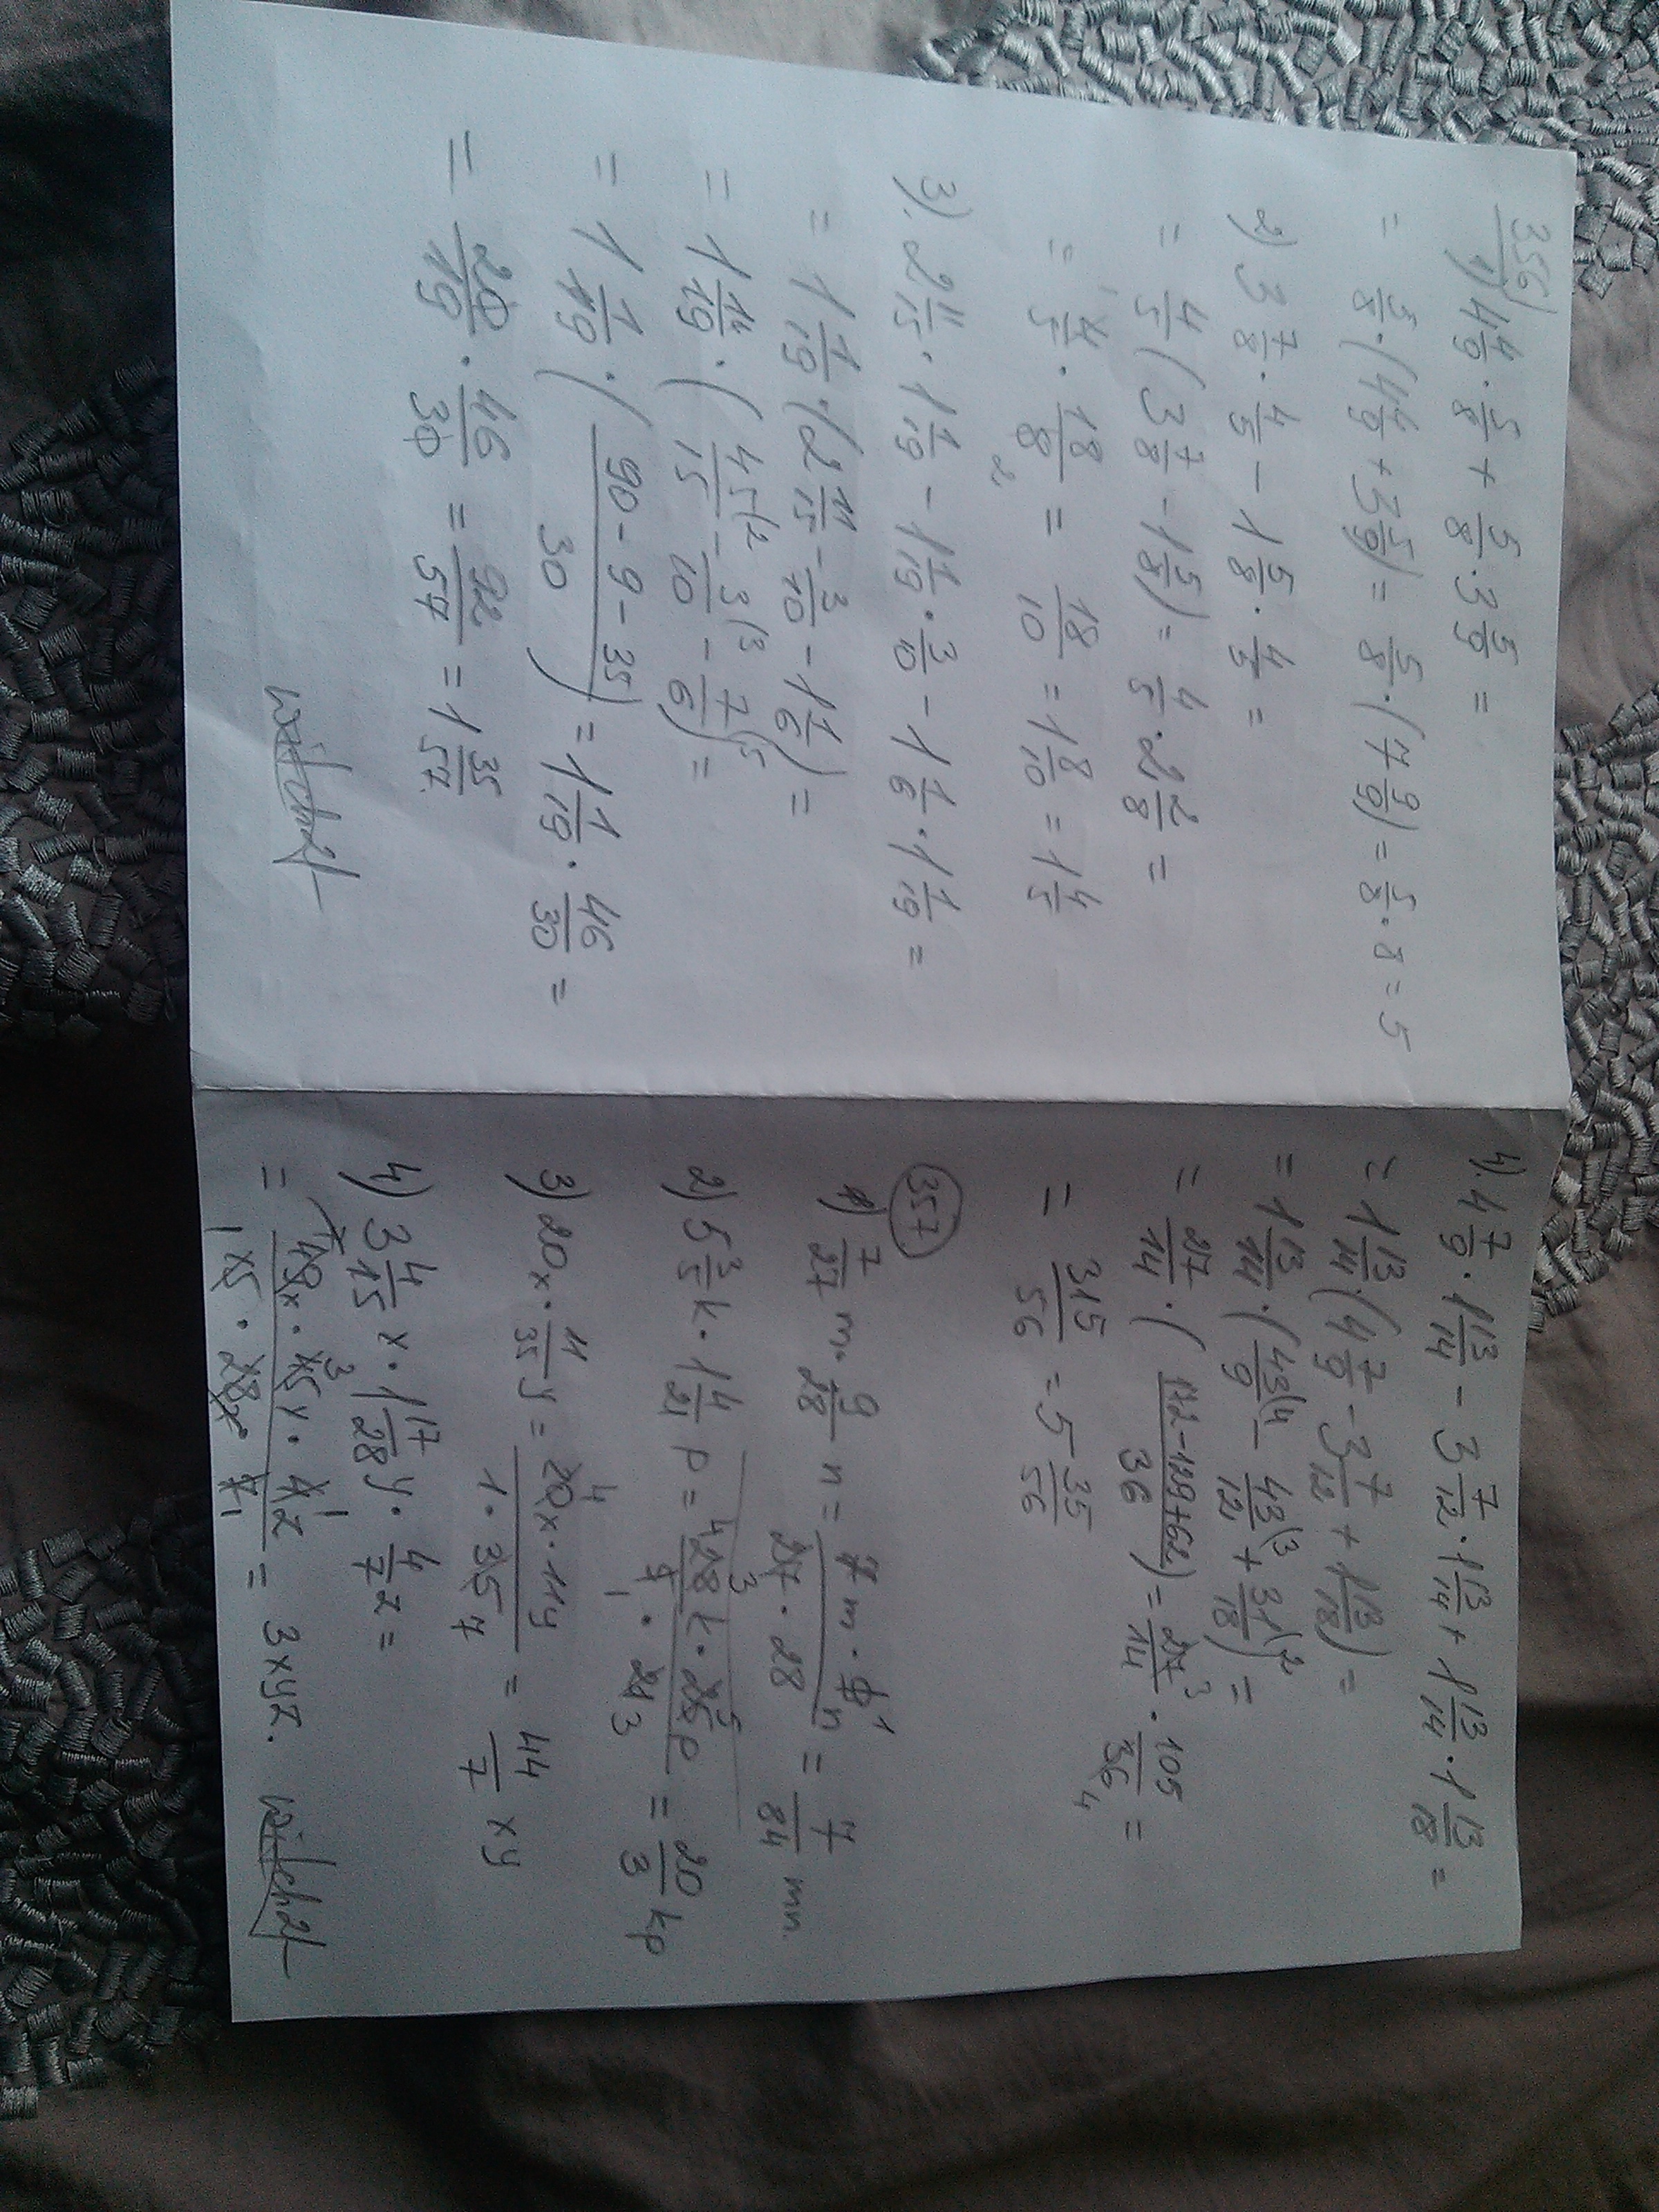 356)
1) 4 4/9 · 5/8 + 5/8 · 3 5/9 =
= 5/8 · (4 4/9 + 3 5/9) = 5/8 · (7 9/9) = 5/8 · 8 = 5
2) 3 7/8 · 4/5 - 1 5/8 · 4/5 =
= 4/5 (3 7/8 - 1 5/8) = 4/5 · 2 2/8 =
= 4/5 · 18/8 = 18/10 = 1 8/10 = 1 4/5
1 2
3). 2 11/15 · 1 1/19 - 1 1/19 · 3/10 - 1 1/6 · 1 1/19 =
= 1 1/19 · (2 11/15 - 3/10 - 1 1/6) =
= 1 1/19 · (45/15 (2 - 3/10 (3 - 7/6 (5) =
= 1 1/19 · (90 - 9 - 35 / 30) = 1 1/19 · 46/30 =
= 20/19 · 46/30 = 92/57 = 1 35/57.
witch21
4). 4 7/9 · 1 13/14 - 3 7/12 · 1 13/14 + 1 13/14 · 1 13/18 =
= 1 13/14 (4 7/9 - 3 7/12 + 1 13/18) =
= 1 13/14 · (43/9 (4 - 43/12 (3 + 31/18 (2) =
= 27/14 · (172 - 129 + 62 / 36) = 27 3/14 · 105/36 4 =
= 315/56 = 5 35/56
357
1) 7/27 m · 9/28 n = 7m · 9 1 n / 27 3 · 28 = 7/84 mn.
2) 5 3/5 k · 1 4/21 p = 4 28 k · 25 5 p / 5 1 · 21 3 = 20/3 kp
3) 20x · 11/35 y = 4 20x · 11y / 1 · 35 7 = 44/7 xy
4) 3 4/15 x · 1 17/28 y · 4/7 z =
= 7 49x · 45 3 y · 4 1 z / 1 15 · 28 7 · 7 1 = 3xyz.
witch21